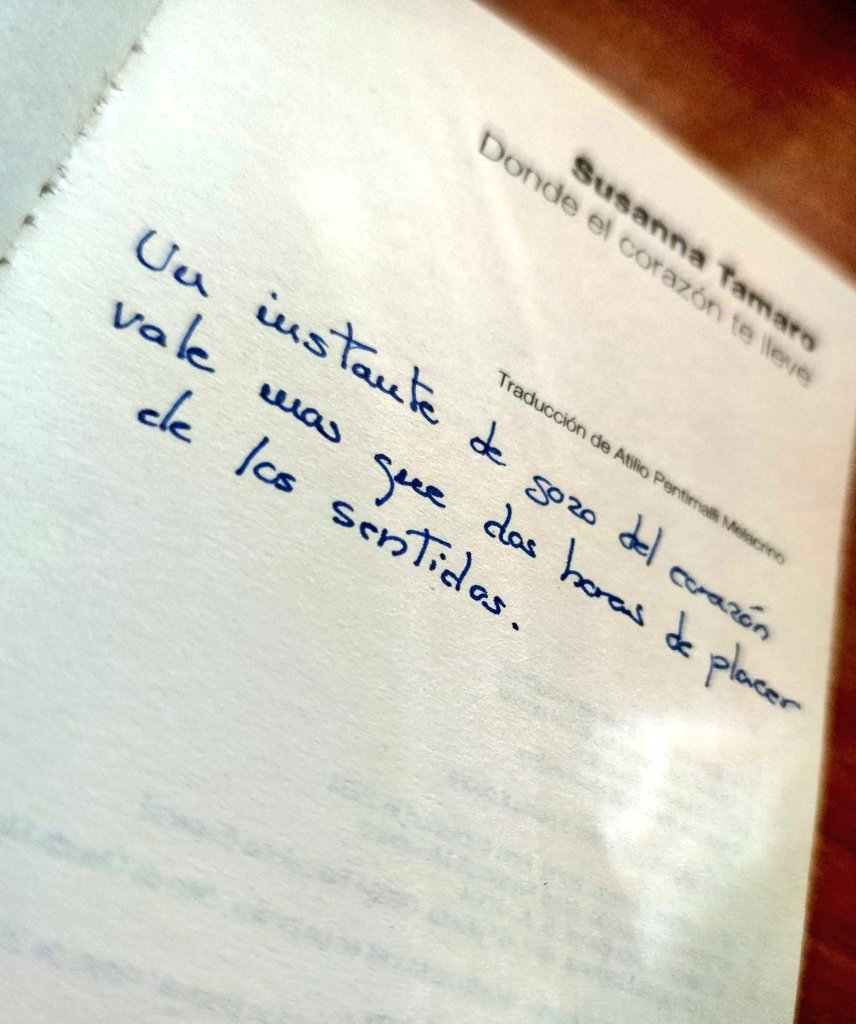 Susanna Tamaro
Donde el corazón te lleve
Traducción de Atilio Pentimalli Melacrino
Un instante de gozo del corazón
vale mas que dos horas de placer
de los sentidos.